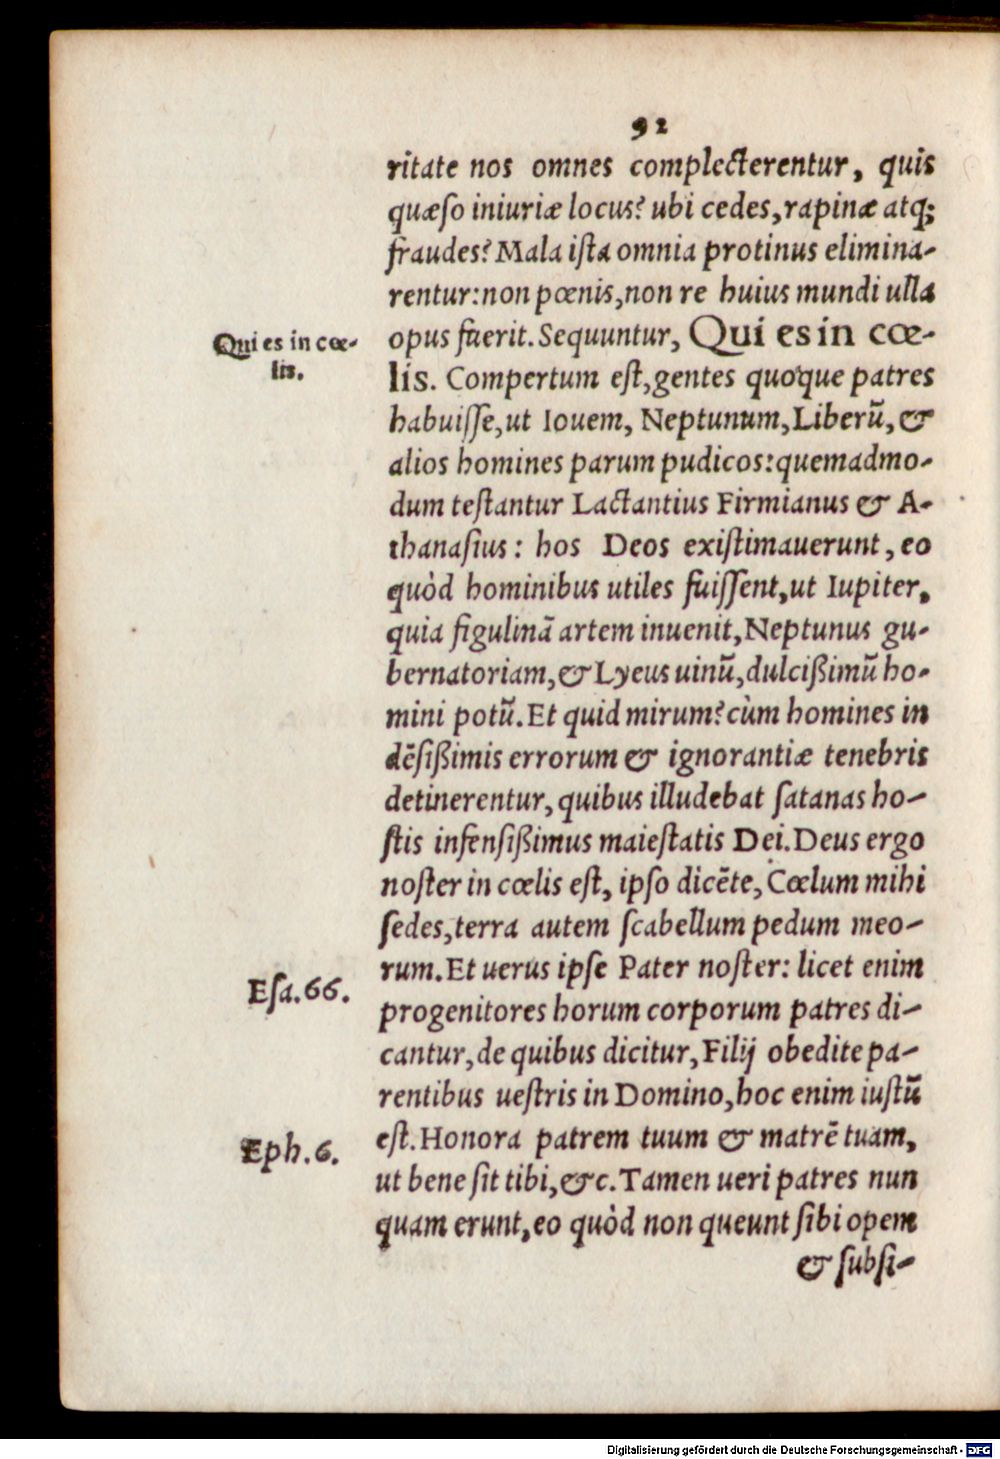 92
ritate nos omnes complecterentur, quis
quæſo iniuriæ locus? ubi cedes, rapinæ atq;
fraudes? Mala iſta omnia protinus elimina-
rentur: non pœnis, non re huius mundi ulla
Qui es in cœ-
lis.
opus fuerit. Sequuntur, Qui es in cœ-
lis. Compertum eſt, gentes quoque patres
habuiſſe, ut Iouem, Neptunum, Liberũ, &
alios homines parum pudicos: quemadmo-
dum teſtantur Lactantius Firmianus & A-
thanaſius: hos Deos exiſtimauerunt, eo
quòd hominibus utiles fuiſſent, ut Iupiter,
quia figulinã artem inuenit, Neptunus gu-
bernatoriam, & Lyeus uinũ, dulcißimũ ho-
mini potũ. Et quid mirum? cùm homines in
dẽſißimis errorum & ignorantiæ tenebris
detinerentur, quibus illudebat ſatanas ho-
ſtis infenſißimus maieſtatis Dei. Deus ergo
noſter in cœlis eſt, ipſo dicẽte, Cœlum mihi
ſedes, terra autem ſcabellum pedum meo-
rum. Et uerus ipſe Pater noſter: licet enim
Eſa. 66.
progenitores horum corporum patres di-
cantur, de quibus dicitur, Filij obedite pa-
rentibus ueſtris in Domino, hoc enim iuſtũ
eſt. Honora patrem tuum & matrẽ tuam,
Eph. 6.
ut bene ſit tibi, &c. Tamen ueri patres nun
quam erunt, eo quòd non queunt ſibi opem
& ſubſi-
Digitalisierung gefördert durch die Deutsche Forschungsgemeinschaft - DFG